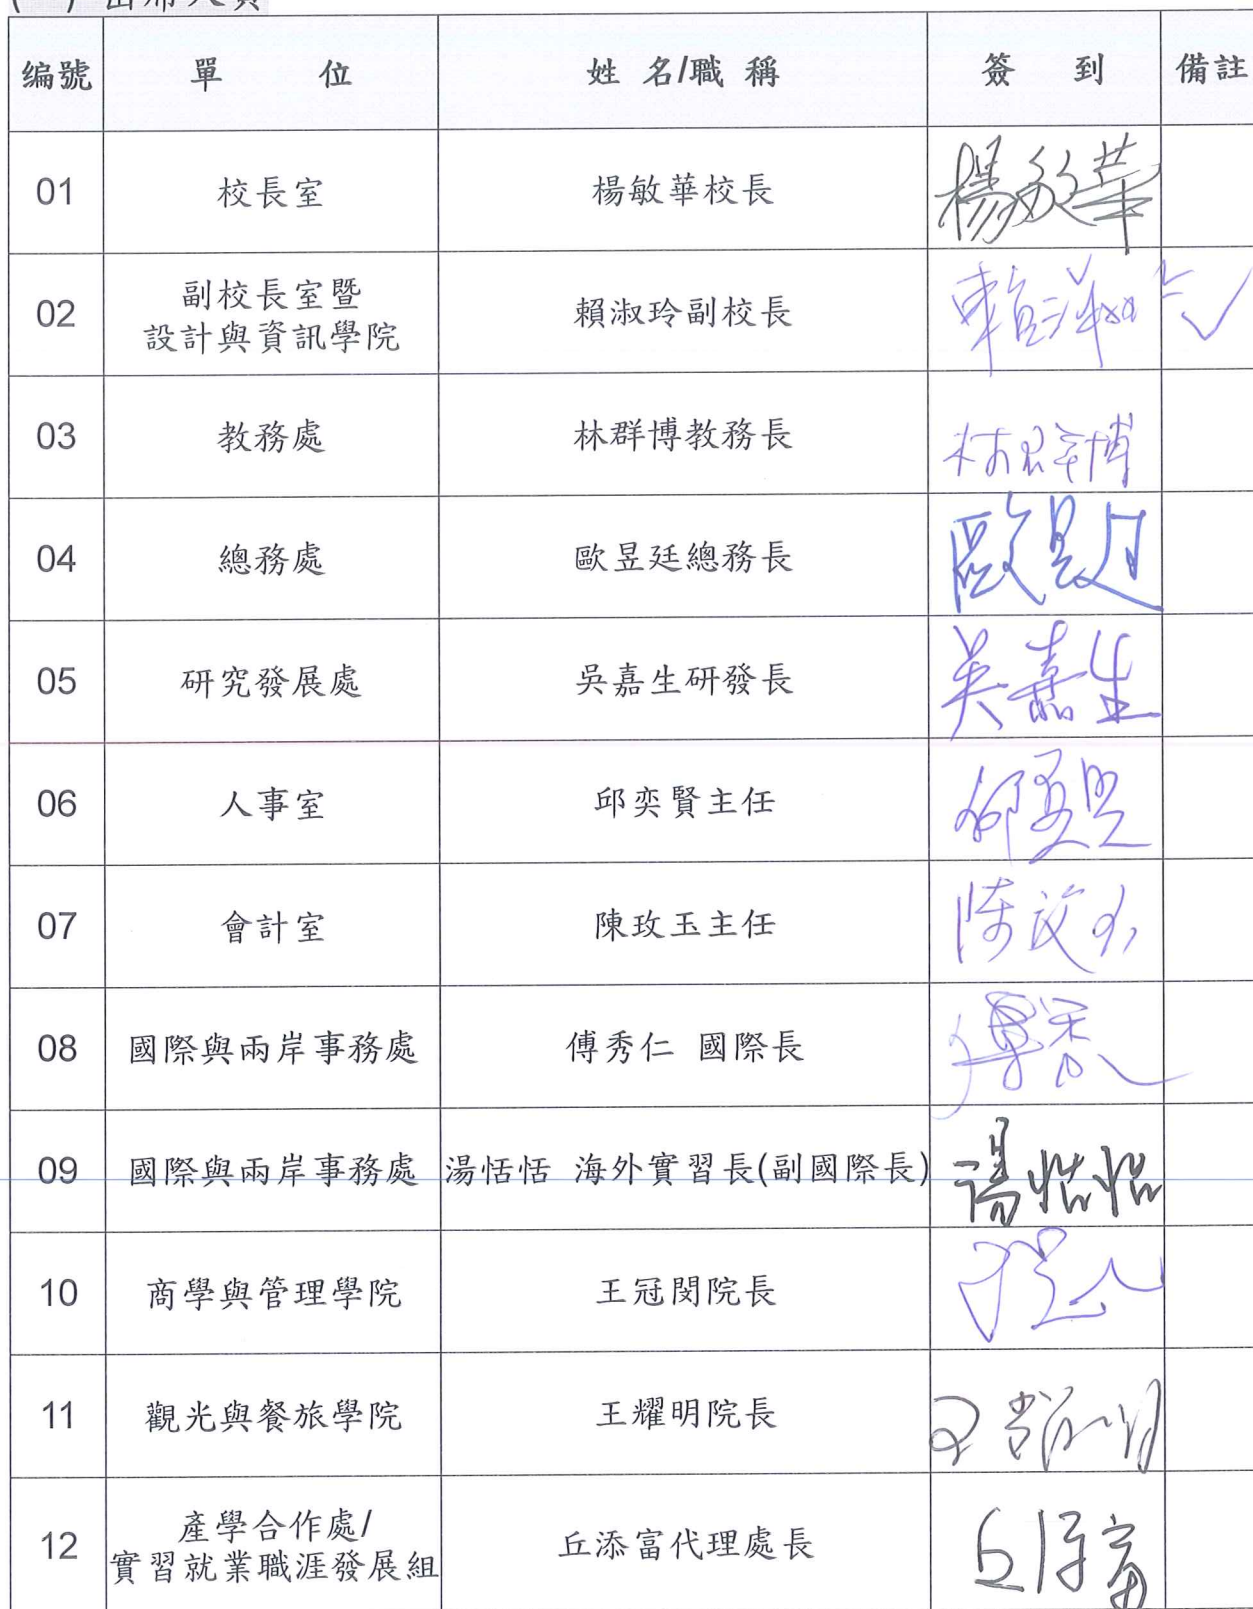 出席人員
編號 單 位 姓 名/職 稱 簽 到 備註
01 校長室 楊敏華校長 楊敏華
02 副校長室暨
設計與資訊學院 賴淑玲副校長 賴淑玲
03 教務處 林群博教務長 林群博
04 總務處 歐昱廷總務長 歐昱廷
05 研究發展處 吳嘉生研發長 吳嘉生
06 人事室 邱奕賢主任 邱奕賢
07 會計室 陳玫玉主任 陳玫玉
08 國際與兩岸事務處 傅秀仁 國際長
09 國際與兩岸事務處 湯恬恬 海外實習長(副國際長) 湯恬恬
10 商學與管理學院 王冠閔院長
11 觀光與餐旅學院 王耀明院長 王耀明
12 產學合作處/
實習就業職涯發展組 丘添富代理處長 丘添富